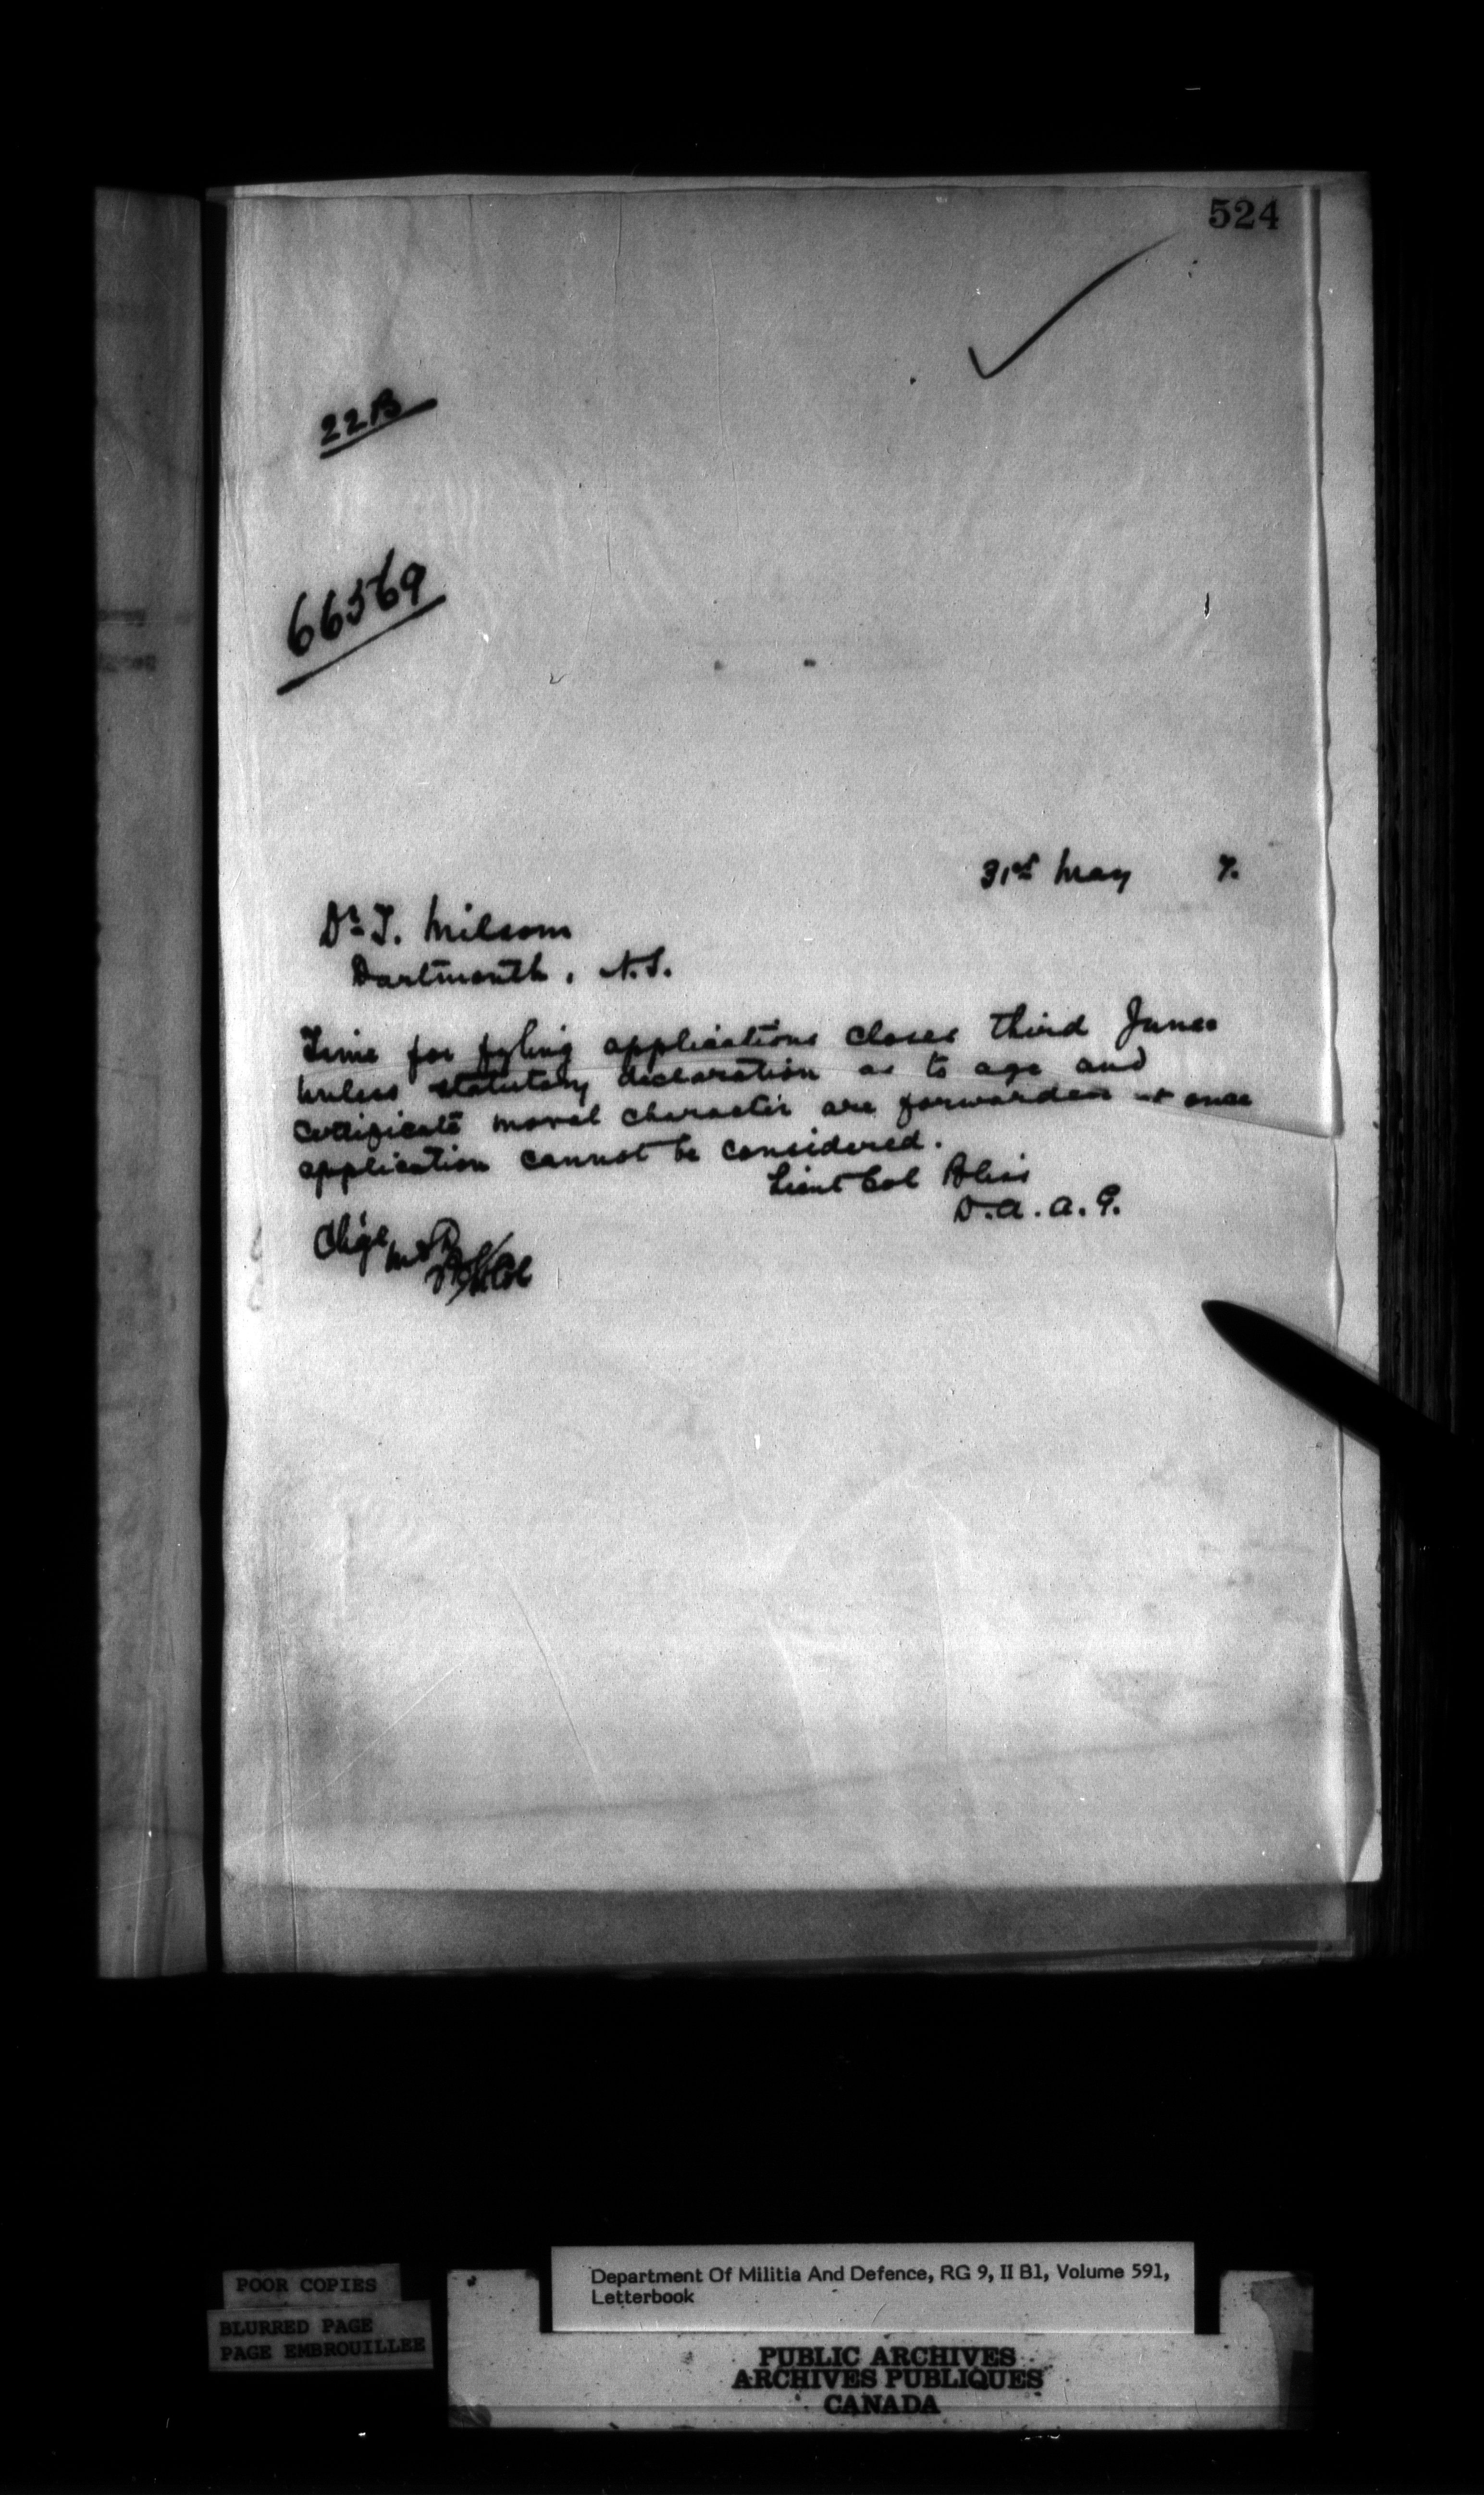 524
22B
66569
31st May 7.
Dr. T. Milsom
Dartmouth, N.S.
Time for fyling applications closes third June
Unless statutory declaration as to age and
certificate moral character are forwarded at once
application cannot be considered.
Lieut Col Bliss
D.A.A.G.
Chge
Department Of Militia And Defence, RG 9, II B1, Volume 591,
Letterbook
POOR COPIES
BLURRED PAGE
PAGE EMBROUILLEE
PUBLIC ARCHIVES
ARCHIVES PUBLIQUES
CANADA